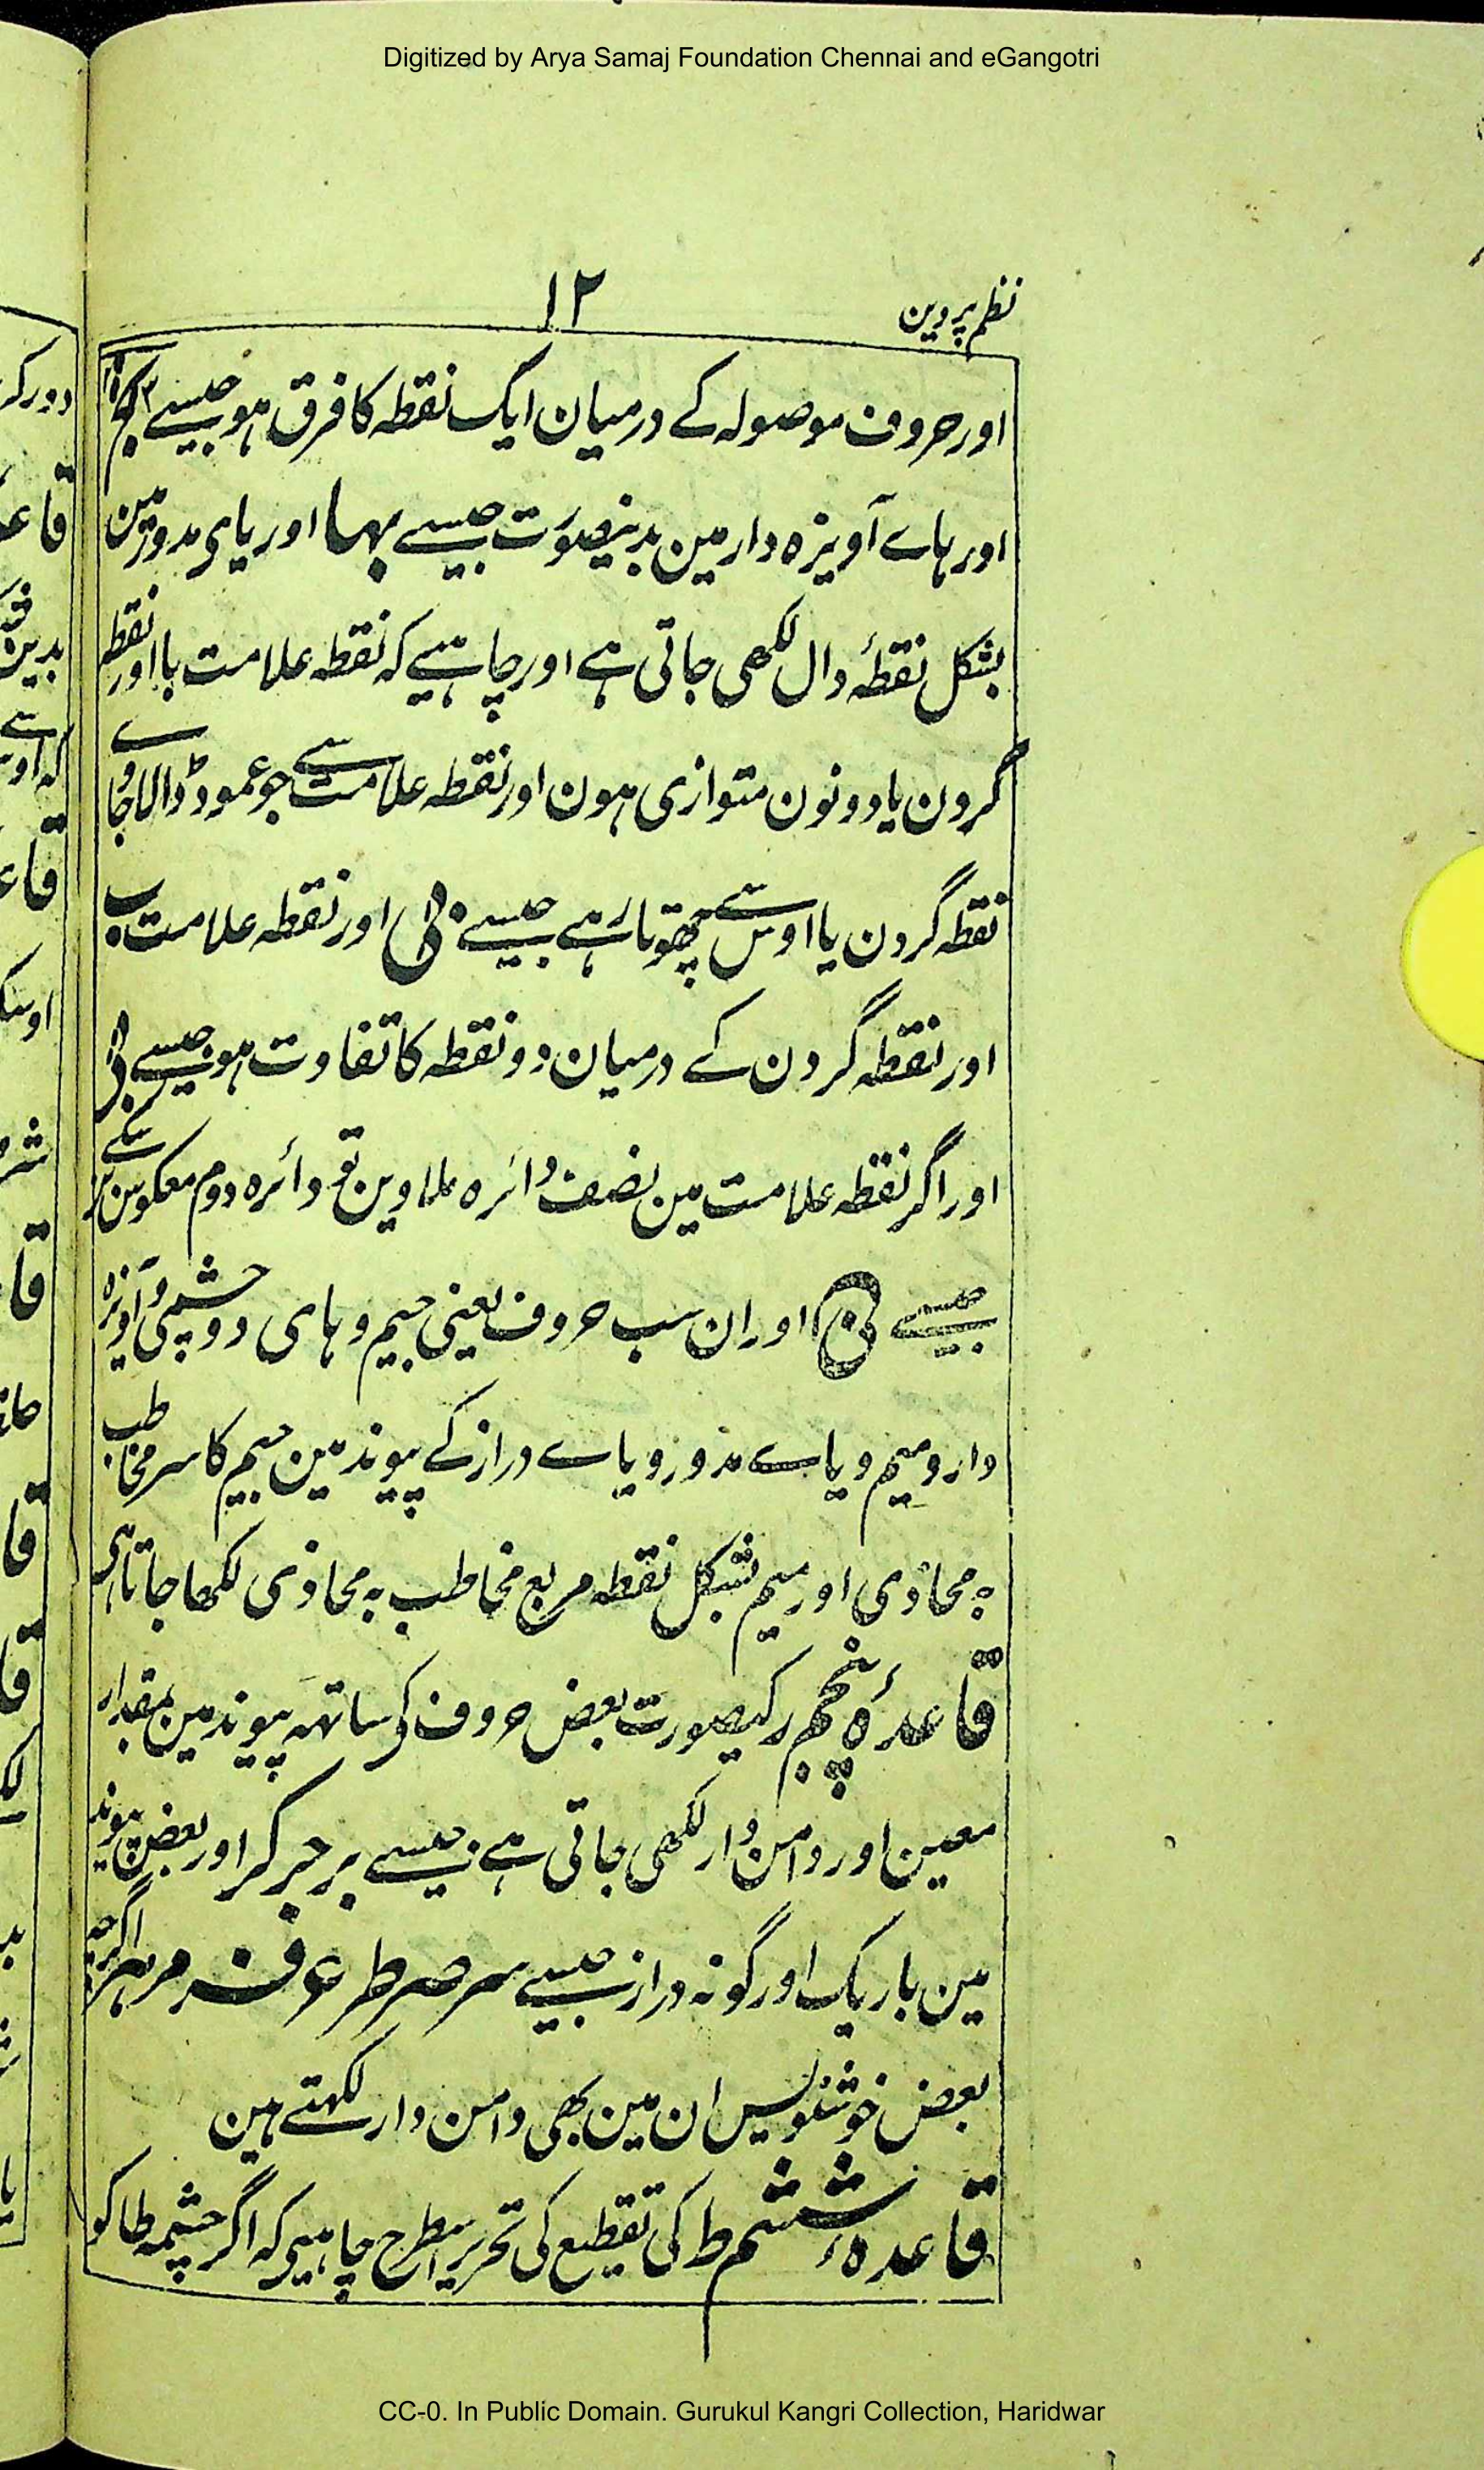 Digitized by Arya Samaj Foundation Chennai and eGangotri
نظم پروین
۱۲
اور حروف موصولہ کے درمیان ایک نقطہ کا فرق ہو جیسے
اور ہاے آویزہ دار مین بدینصورت جیسے بہا اور یای مدور مین
بشکل نقطۂ دال لکھی جاتی ہے اور چاہیے کہ نقطہ علامت با اور نقطہ
گردن یا دونون متوازی ہون اور نقطہ علامت سے جو عمود ڈالا جاوے
نقطہ گردن یا اوس سے چھوتا رہے جیسے اور نقطہ علامت ب
اور نقطہ گردن کے درمیان دو نقطہ کا تفاوت ہو جیسے
اور اگر نقطہ علامت مین نصف دائرہ ملا وین تو دائرہ دوم معکوس کے
جیسے اور ان سب حروف یعنی جیم و ہای دوچشمی و آویزہ
دار و میم و یاے مدور و یاے دراز کے پیوند مین جیم کا سر مخاطب
بہ محاذی اور میم بشکل نقطہ مربع مخاطب بہ محاذی لکھا جاتا ہی
قاعدۂ پنجم ر کیصورت بعض حروف کی ساتھہ پیوند مین بمقدار
معین اور دامن دار لکھی جاتی ہے جیسے بر جر کر اور بعض پیوند
مین باریک اور گونہ دراز جیسے سر صر طر عر فر مر ہر اگرچہ
بعض خوشنویس ان مین بھی دامن دار لکھتے ہین
قاعدہ ششم ط کی تقطیع کی تحریر اسطرح چاہیی کہ اگر چشمہ طا کو
CC-0. In Public Domain. Gurukul Kangri Collection, Haridwar